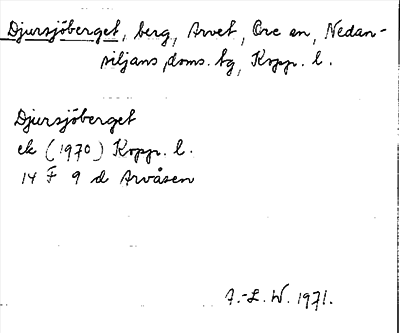 Djursjöberget, berg, Arvet, Ore sn, Nedan-
siljans doms. tg, Kopp. l.
Djursjöberget
ek (1970) Kopp. l.
14 F 9 d Arvåsen
A.-L. W. 1971.